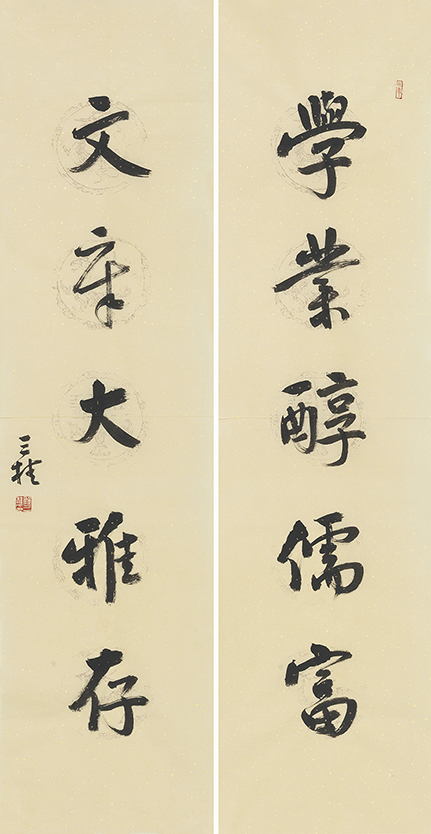 學業醇儒富
文章大雅存